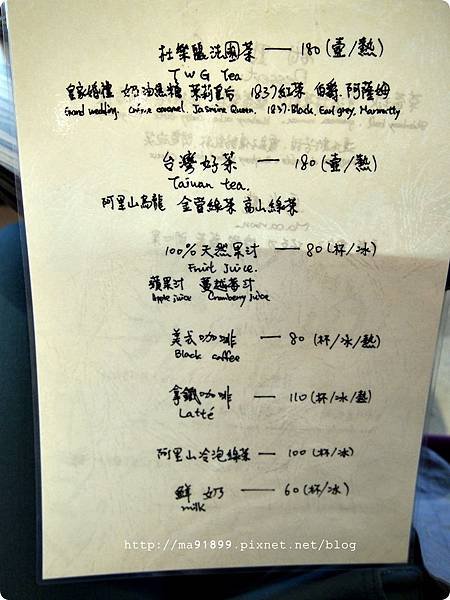 杜樂麗法國茶 — 180 (壺/熱)
TWG Tea
皇家婚禮 奶油焦糖 茉莉皇后 1837紅茶 伯爵 阿薩姆
Grand wedding. Créme caramel. Jasmine Queen. 1837.Black. Earl grey.
台灣好茶 — 180 (壺/熱)
Taiwan tea.
阿里山烏龍 金萱綠茶 高山綠茶
100% 天然果汁 — 80 (杯/冰)
Fruit Juice.
蘋果汁 蔓越莓汁
Apple juice Cranberry juice
美式咖啡 — 80 (杯/冰/熱)
Black coffee
拿鐵咖啡 — 110 (杯/冰/熱)
Latté
阿里山冷泡綠茶 — 100 (杯/冰)
鮮奶 — 60 (杯/冰)
milk
http://ma91899.pixnet.net/blog